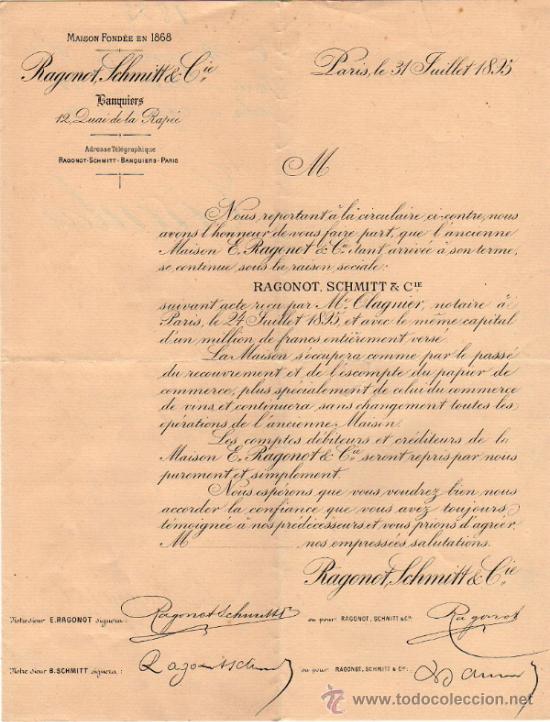 MAISON FONDÉE EN 1868
Ragonot, Schmitt & Cie
Banquiers
12, Quai de la Rapée
Adresse Télégraphique
RAGONOT-SCHMITT-BANQUIERS-PARIS
Paris, le 31 Juillet 1895
M
Nous reportant à la circulaire ci-contre, nous
avons l'honneur de vous faire part, que l'ancienne
Maison E. Ragonot & Cie étant arrivée à son terme,
se continue sous la raison sociale:
RAGONOT, SCHMITT & CIE
suivant acte reçu par Me Olagnier, notaire à
Paris, le 24 Juillet 1895, et avec le même capital
d'un million de francs entièrement versé
La Maison s'occupera comme par le passé
du recouvrement et de l'escompte du papier de
commerce, plus spécialement de celui du commerce
de vins et continuera sans changement toutes les
opérations de l'ancienne Maison.
Les comptes débiteurs et créditeurs de la
Maison E. Ragonot & Cie seront repris par nous
purement et simplement.
Nous espérons que vous voudrez bien nous
accorder la confiance que vous avez toujours
témoignée à nos prédécesseurs et vous prions d'agréer,
M nos empressées salutations.
Ragonot, Schmitt & Cie
Notre sieur E. RAGONOT signera: Ragonot Schmitt ou pour RAGONOT, SCHMITT & Cie: Ragonot
Notre sieur B. SCHMITT signera: Ragonot Schmitt ou pour RAGONOT, SCHMITT & Cie:
todocoleccion
www.todocoleccion.net